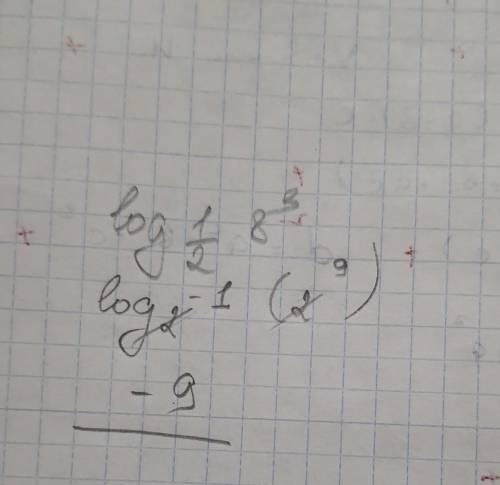 log 1/2 8^3
log 2^-1 (2^9)
- 9